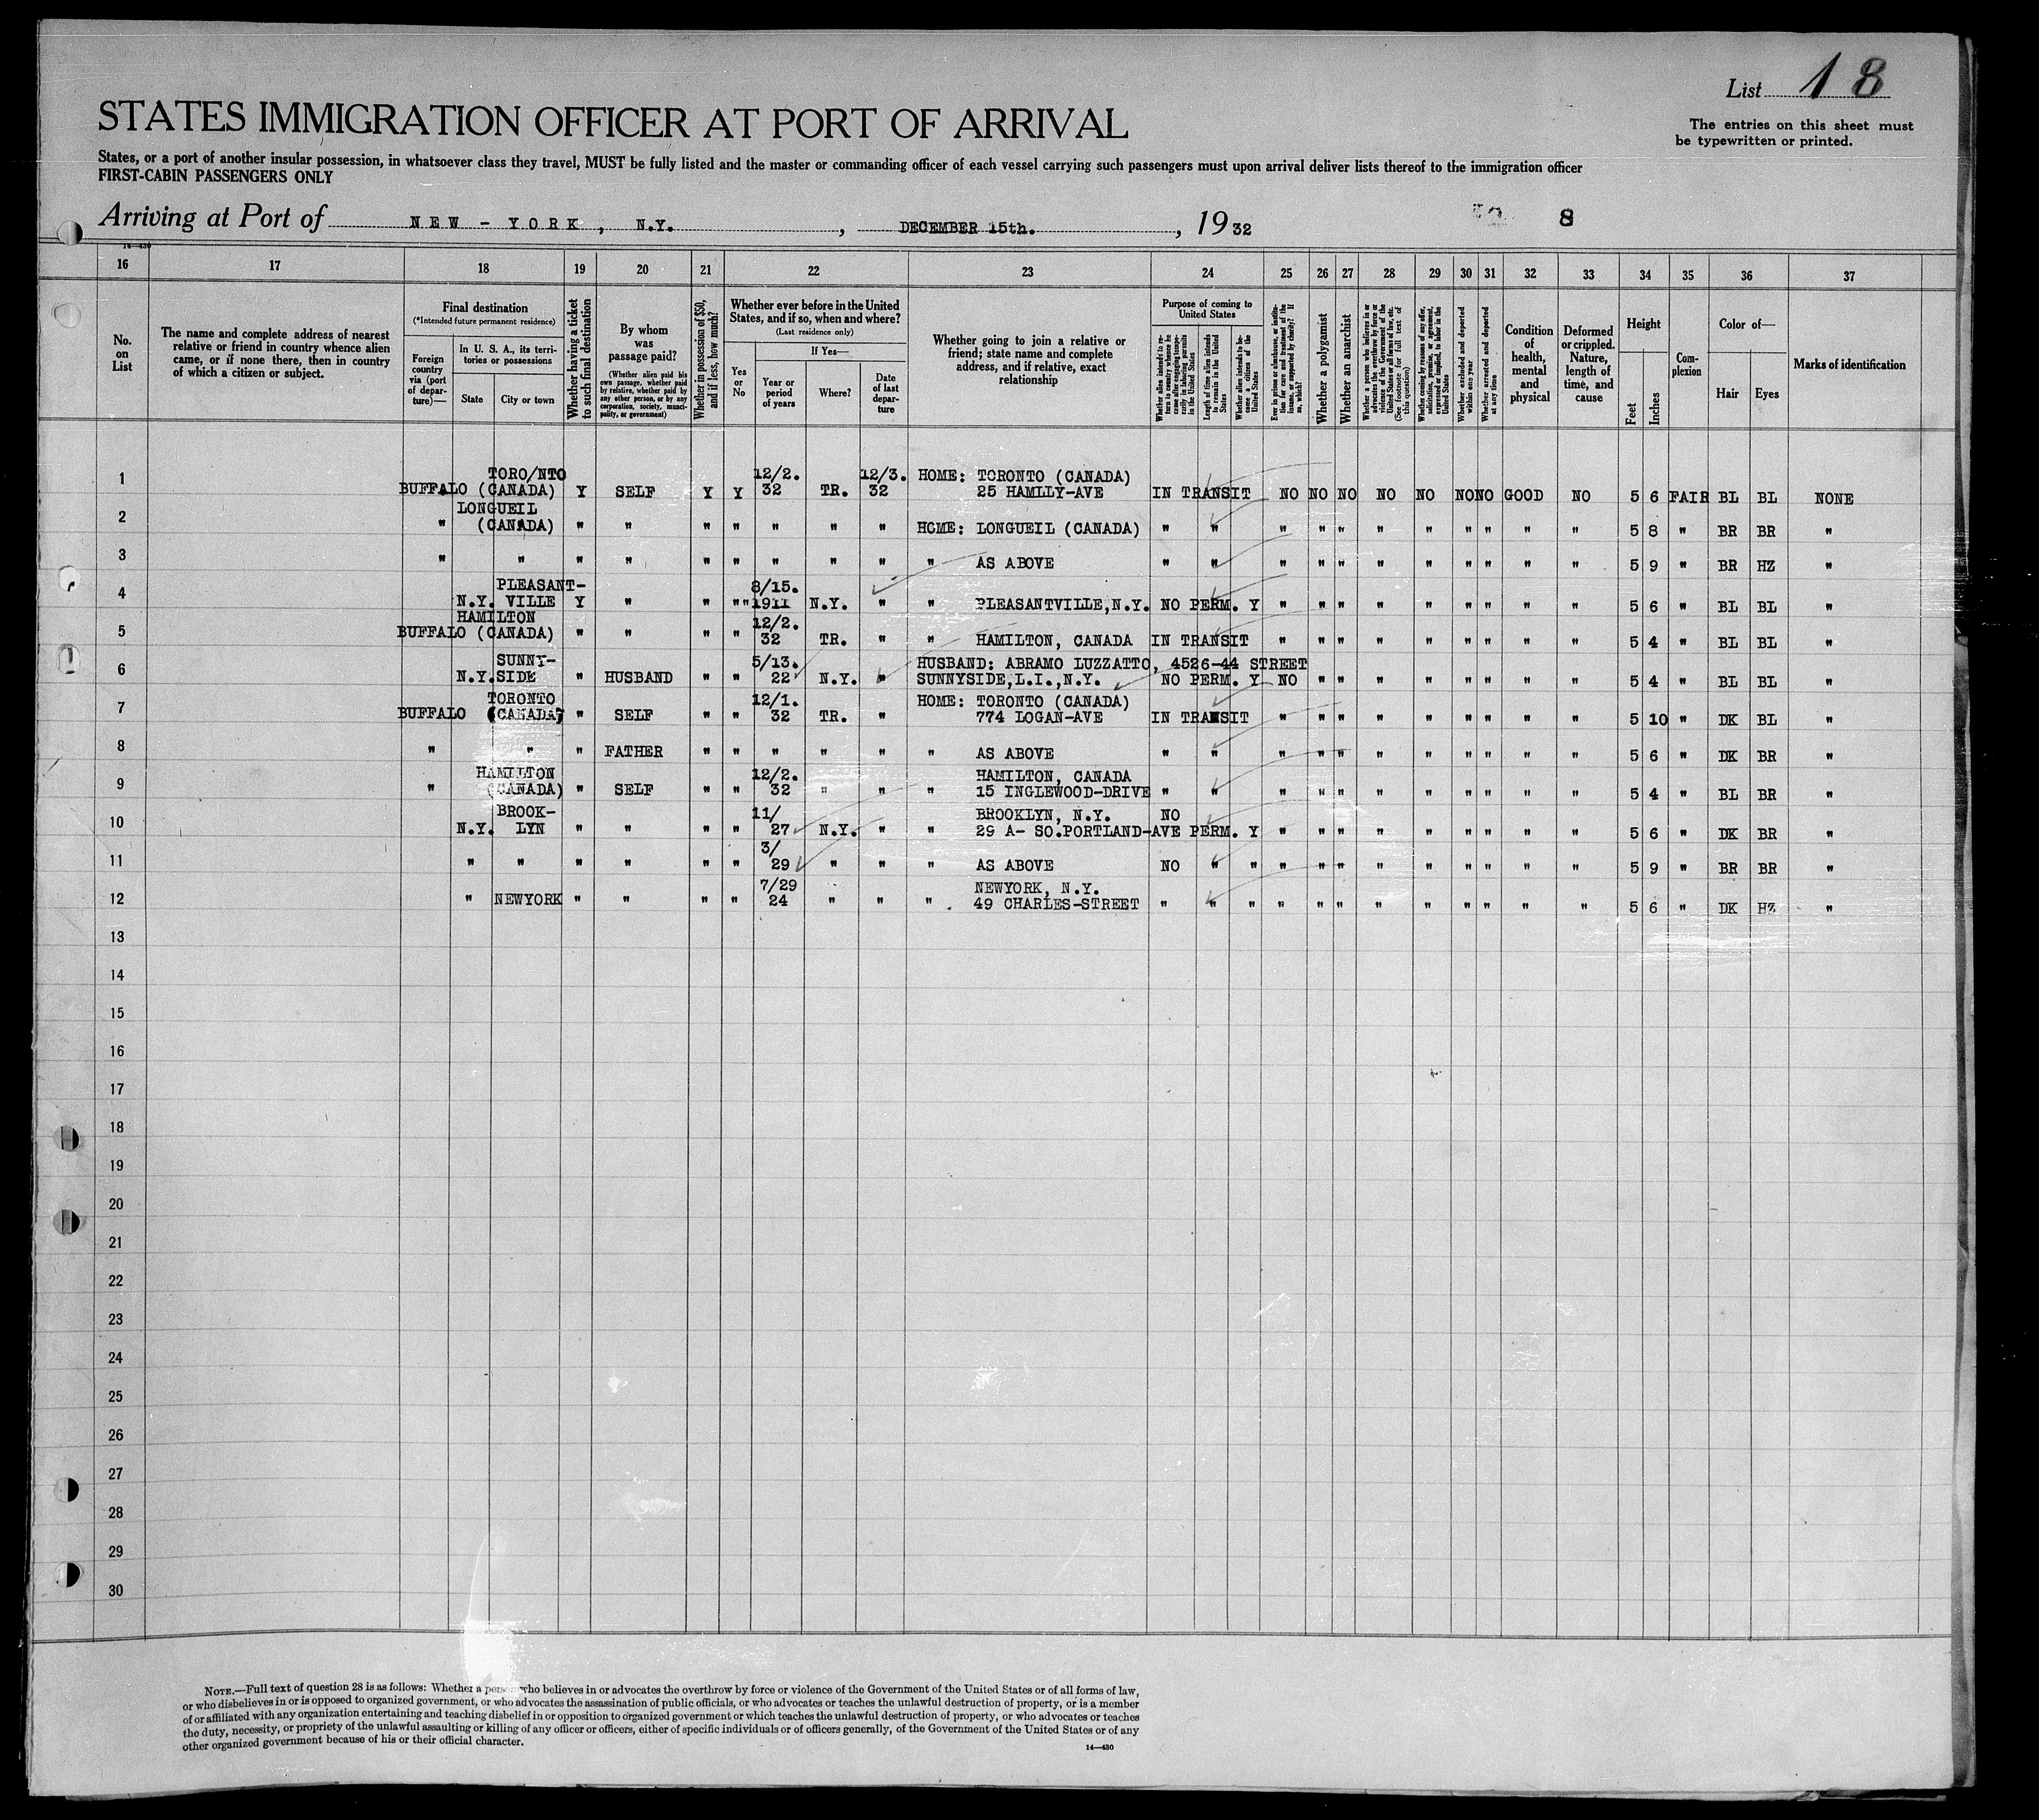 List 18
The entries on this sheet must
be typewritten or printed.
STATES IMMIGRATION OFFICER AT PORT OF ARRIVAL
States, or a port of another insular possession, in whatsoever class they travel, MUST be fully listed and the master or commanding officer of each vessel carrying such passengers must upon arrival deliver lists thereof to the immigration officer
FIRST-CABIN PASSENGERS ONLY
Arriving at Port of NEW - YORK, N.Y., DECEMBER 15th., 19 32 8
14—430
16 17 18 19 20 21 22 23 24 25 26 27 28 29 30 31 32 33 34 35 36 37
No. on List
The name and complete address of nearest relative or friend in country whence alien came, or if none there, then in country of which a citizen or subject.
Final destination
(*Intended future permanent residence)
Foreign country via (port of departure)—
In U. S. A., its territories or possessions
State
City or town
Whether having a ticket to such final destination
By whom was passage paid?
(Whether alien paid his own passage, whether paid by relative, whether paid by any other person, or by any corporation, society, municipality, or government)
Whether in possession of $50, and if less, how much?
Whether ever before in the United States, and if so, when and where?
(Last residence only)
Yes or No
If Yes—
Year or period of years
Where?
Date of last departure
Whether going to join a relative or friend; state name and complete address, and if relative, exact relationship
Purpose of coming to United States
Whether alien intends to return to country whence he came after engaging temporarily in laboring pursuits in the United States
Length of time alien intends to remain in the United States
Whether alien intends to become a citizen of the United States
Ever in prison or almshouse, or institution for care and treatment of the insane, or supported by charity? If so, which?
Whether a polygamist
Whether an anarchist
Whether a person who believes in or advocates the overthrow by force or violence of the Government of the United States or all forms of law, etc. (See footnote for full text of this question)
Whether coming by reasons of any offer, solicitation, promise, or agreement, expressed or implied, to labor in the United States
Whether excluded and deported within one year
Whether arrested and deported at any time
Condition of health, mental and physical
Deformed or crippled. Nature, length of time, and cause
Height
Feet
Inches
Complexion
Color of—
Hair
Eyes
Marks of identification
TORO/NTO 12/2. 12/3. HOME: TORONTO (CANADA)
1 BUFFALO (CANADA) Y SELF Y Y 32 TR. 32 25 HAMLLY-AVE IN TRANSIT NO NO NO NO NO NO NO GOOD NO 5 6 FAIR BL BL NONE
LONGUEIL
2 " (CANADA) " " " " " " " HOME: LONGUEIL (CANADA) " " " " " " " " " " " 5 8 " BR BR "
3 " " " " " " " " " " AS ABOVE " " " " " " " " " " " 5 9 " BR HZ "
PLEASANT- 8/15.
4 N.Y. VILLE Y " " " " 1911 N.Y. " " PLEASANTVILLE, N.Y. NO PERM. Y " " " " " " " " " 5 6 " BL BL "
HAMILTON 12/2.
5 BUFFALO (CANADA) " " " " 32 TR. " " HAMILTON, CANADA IN TRANSIT " " " " " " " " " 5 4 " BL BL "
SUNNY- 5/13. HUSBAND: ABRAMO LUZZATTO, 4526-44 STREET
6 N.Y. SIDE " HUSBAND " " 22 N.Y. " SUNNYSIDE, L.I., N.Y. NO PERM. Y NO " " " " " " " " 5 4 " BL BL "
TORONTO 12/1. HOME: TORONTO (CANADA)
7 BUFFALO (CANADA) " SELF " " 32 TR. " 774 LOGAN-AVE IN TRANSIT " " " " " " " " " 5 10 " DK BL "
8 " " " FATHER " " " " " " AS ABOVE " " " " " " " " " " " 5 6 " DK BR "
HAMILTON 12/2. HAMILTON, CANADA
9 " (CANADA) " SELF " " 32 " " " 15 INGLEWOOD-DRIVE " " " " " " " " " " " 5 4 " BL BR "
BROOK- 11/ BROOKLYN, N.Y. NO
10 N.Y. LYN " " " " 27 N.Y. " " 29 A- SO.PORTLAND-AVE PERM. Y " " " " " " " " " 5 6 " DK BR "
3/
11 " " " " " " 29 " " " AS ABOVE NO " " " " " " " " " " " 5 9 " BR BR "
7/29 NEWYORK, N.Y.
12 " NEWYORK " " " " 24 " " " 49 CHARLES-STREET " " " " " " " " " " " " 5 6 " DK HZ "
13
14
15
16
17
18
19
20
21
22
23
24
25
26
27
28
29
30
NOTE.—Full text of question 28 is as follows: Whether a person who believes in or advocates the overthrow by force or violence of the Government of the United States or of all forms of law,
or who disbelieves in or is opposed to organized government, or who advocates the assassination of public officials, or who advocates or teaches the unlawful destruction of property, or is a member
of or affiliated with any organization entertaining and teaching disbelief in or opposition to organized government or which teaches the unlawful destruction of property, or who advocates or teaches
the duty, necessity, or propriety of the unlawful assaulting or killing of any officer or officers, either of specific individuals or of officers generally, of the Government of the United States or of any
other organized government because of his or their official character.
14—430